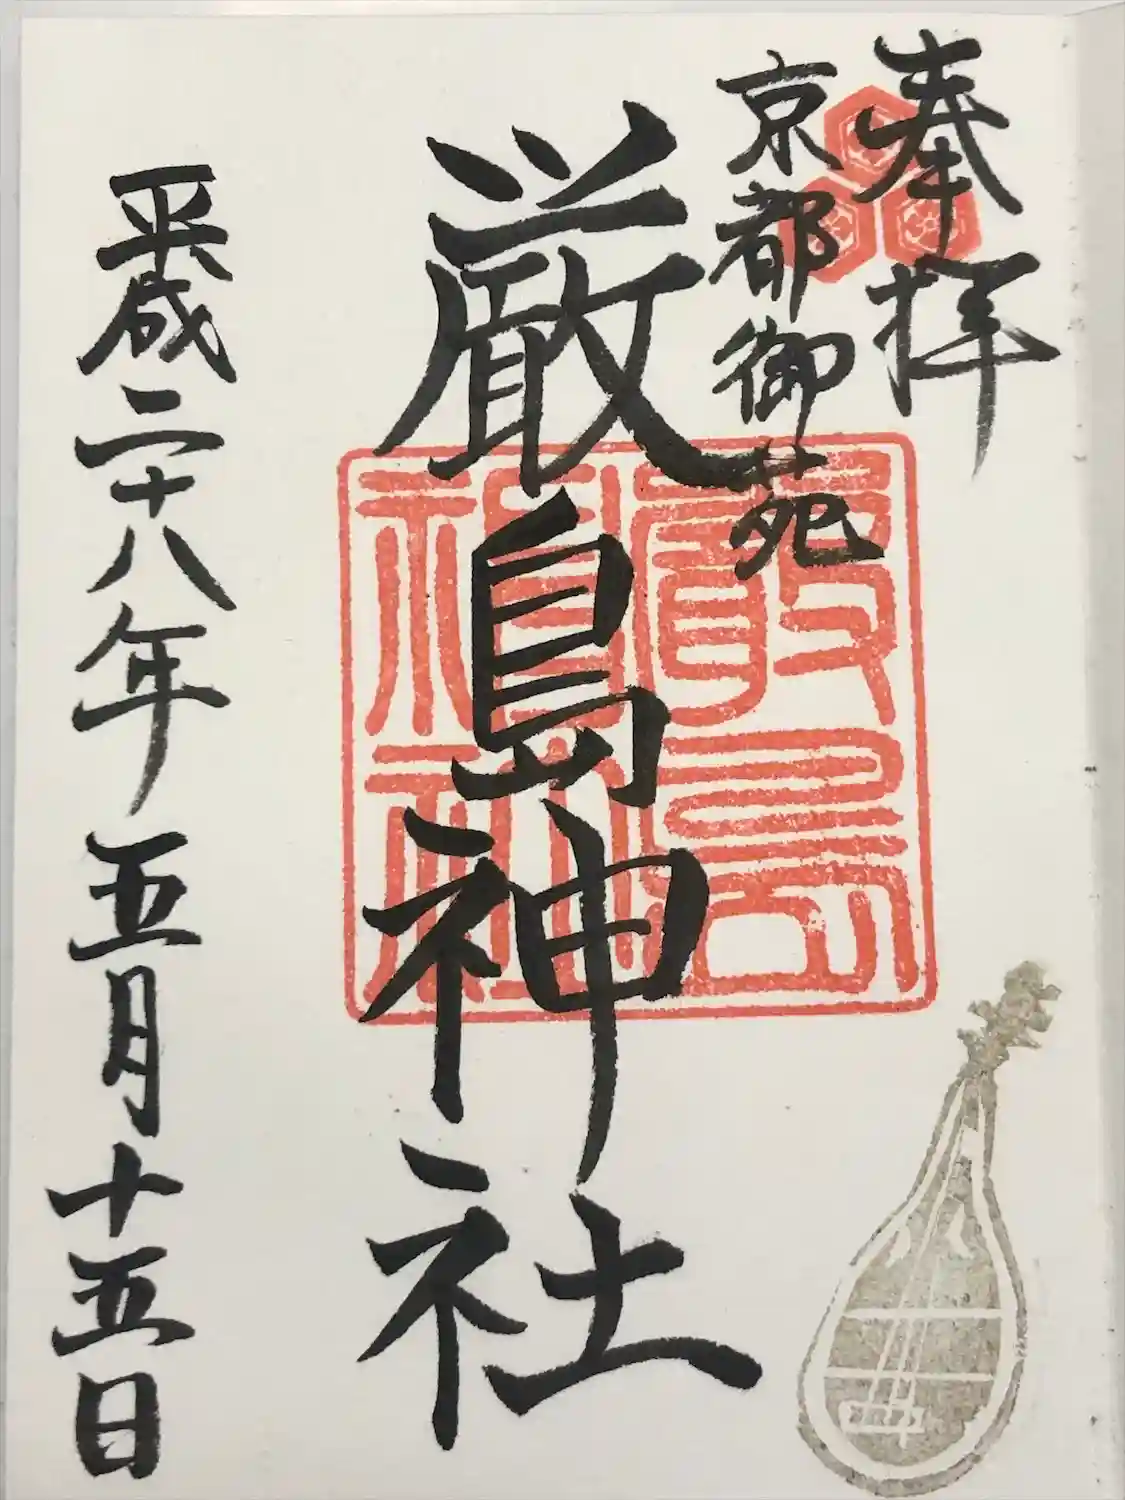 奉拝
京都御苑
厳島神社
嚴島神社
平成二十八年五月十五日